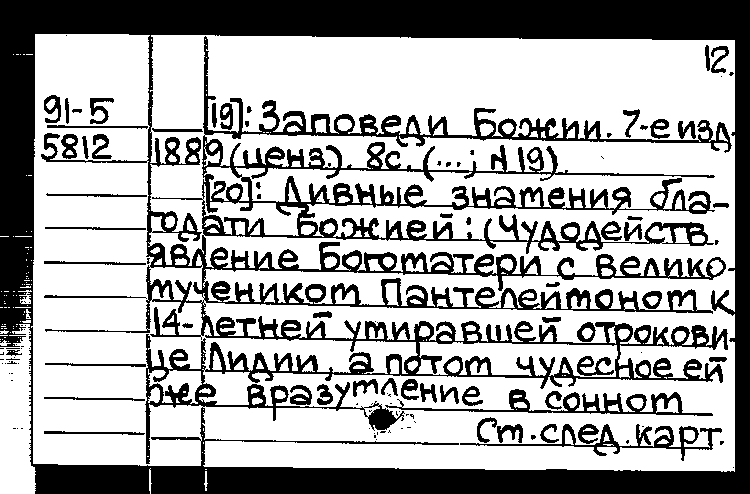 12.
91-5 [19]: Заповеди Божии. 7-е изд.
5812 1889 (ценз.). 8с. (...; N 19).
[20]: Дивные знамения бла-
годати Божией: (Чудодейств.
явление Богоматери с велико-
мучеником Пантелеймоном к
14-летней умиравшей отрокови-
це Лидии, а потом чудесное ей
же вразумление в сонном
См. след. карт.